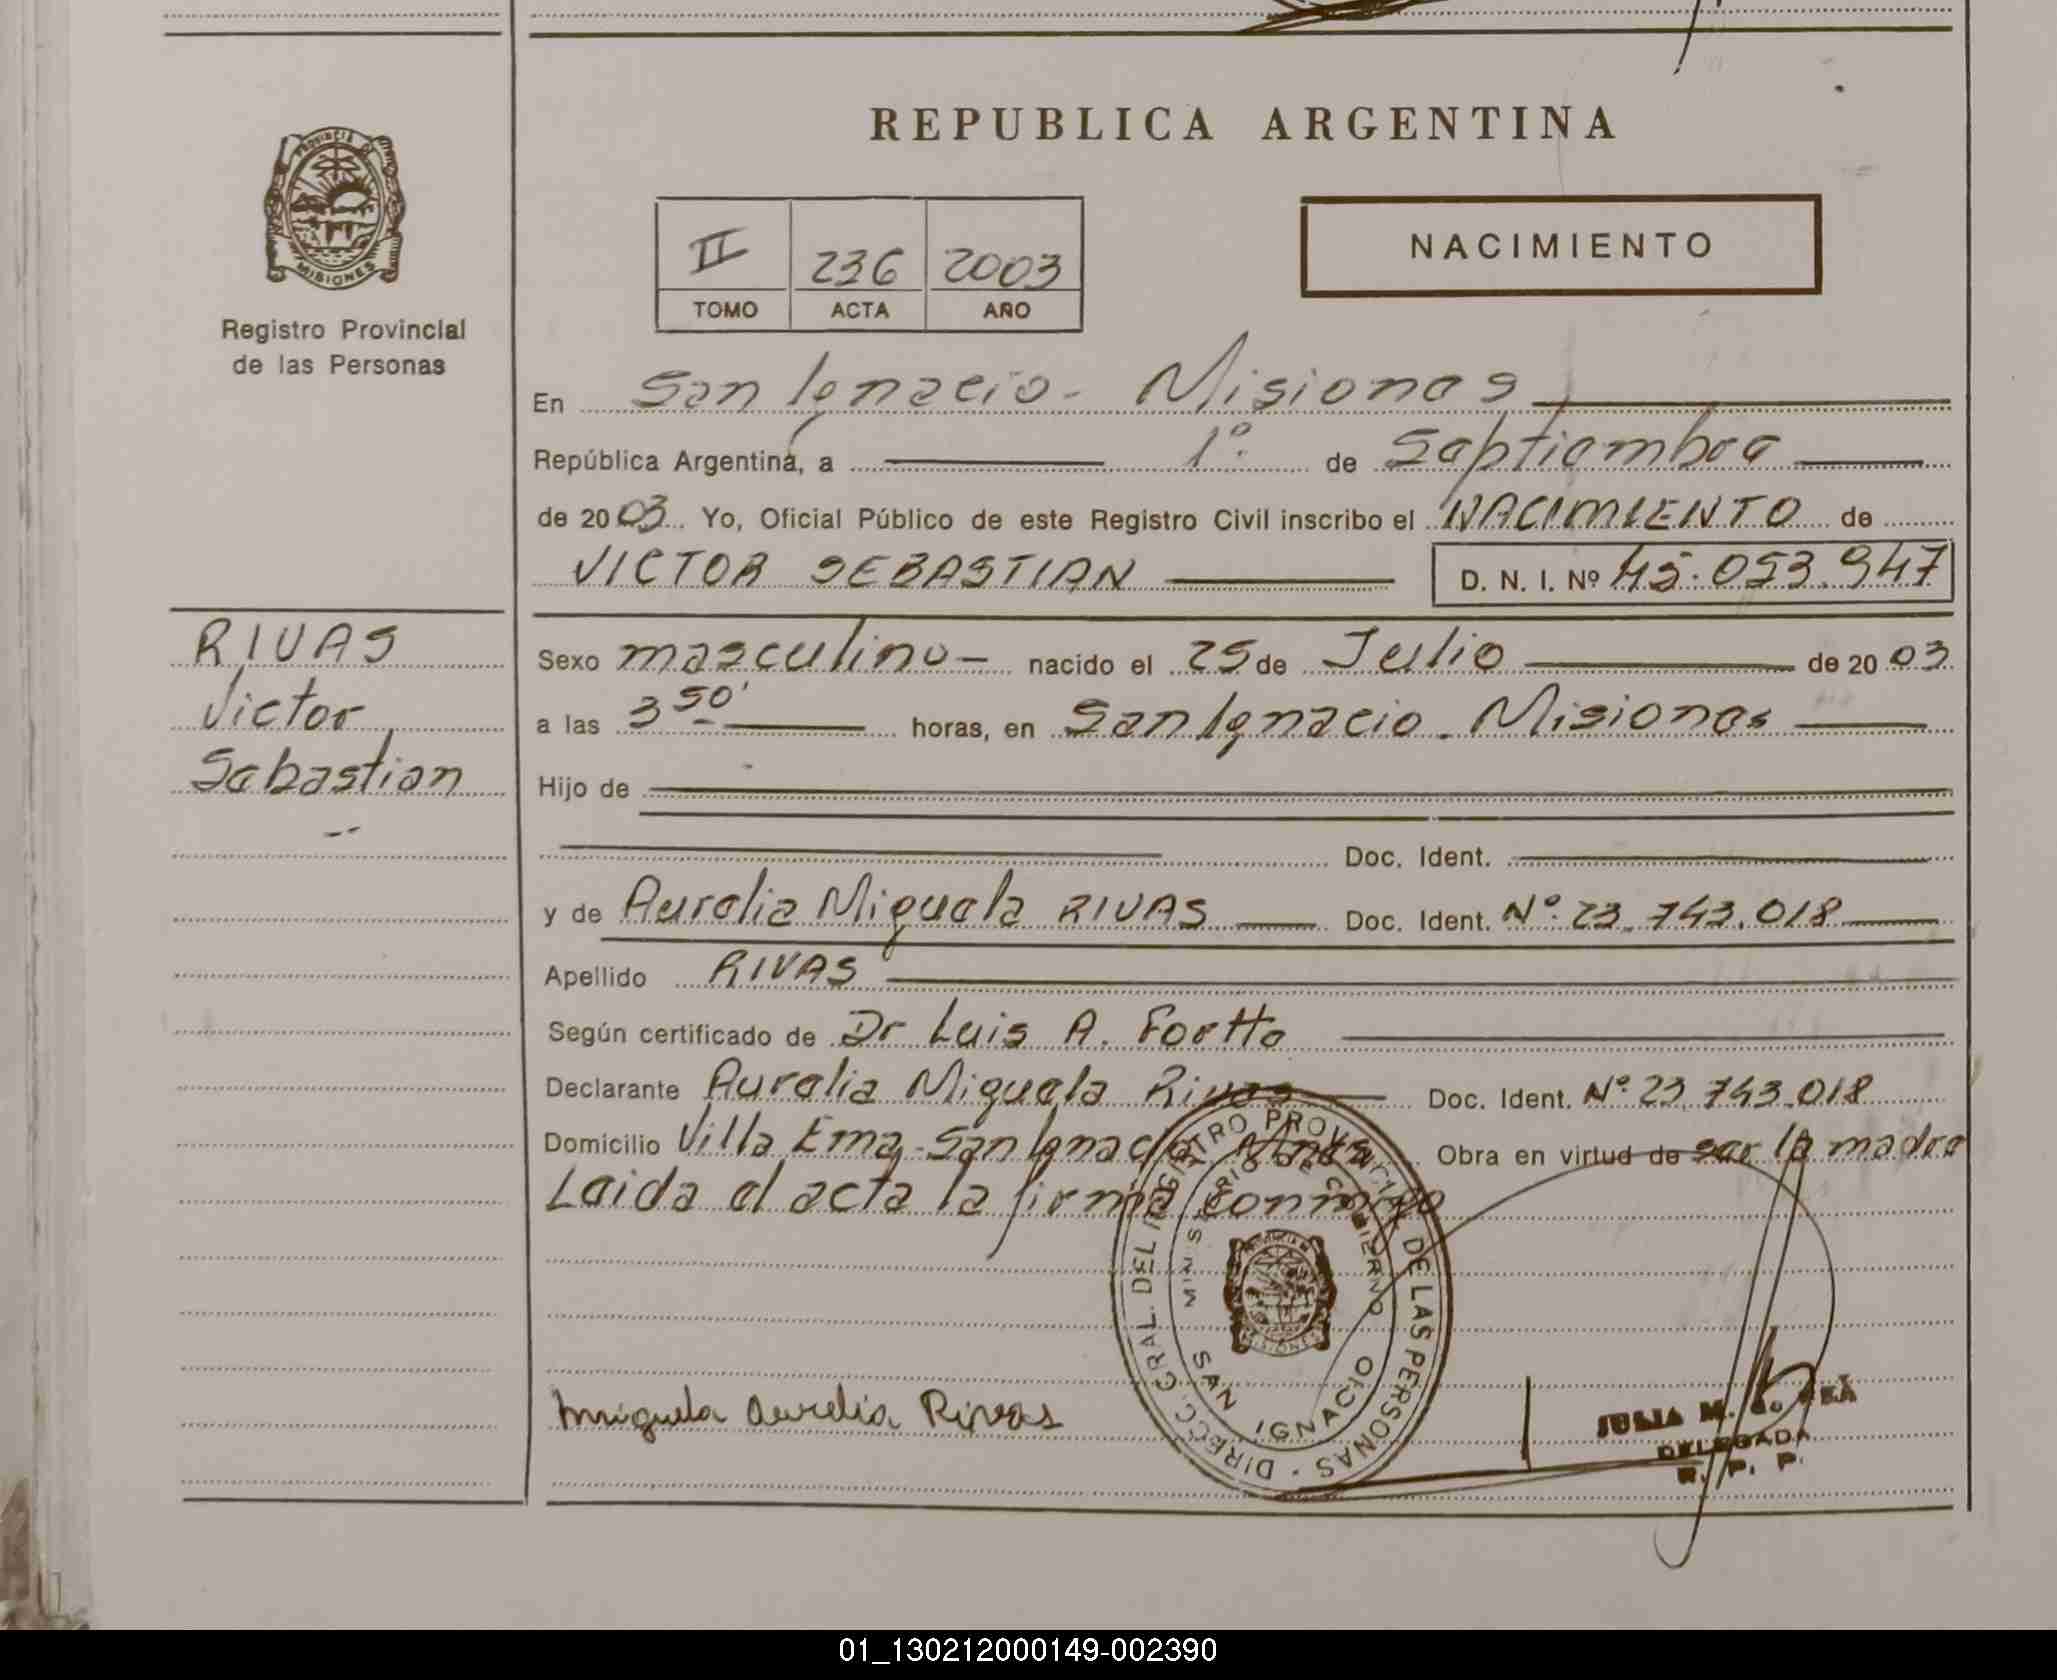 REPUBLICA ARGENTINA
PROVINCIA DE
MISIONES
Registro Provincial
de las Personas
NACIMIENTO
II 236 2003
TOMO ACTA AÑO
En San Ignacio - Misiones
República Argentina, a 1º. de Septiembre
de 2003 Yo, Oficial Público de este Registro Civil inscribo el NACIMIENTO de
VICTOR SEBASTIAN D. N. I. Nº 45.053.947
RIVAS
Victor
Sebastian
Sexo masculino - nacido el 25 de Julio de 2003
a las 3 50' horas, en San Ignacio - Misiones
Hijo de
Doc. Ident.
y de Aurelia Miguela RIVAS Doc. Ident. Nº. 23.743.018
Apellido RIVAS
Según certificado de Dr Luis A.
Declarante Aurelia Miguela Rivas Doc. Ident. Nº. 23.743.018
Domicilio Villa Ema - San Ignacio Mnes Obra en virtud de ser la madre
Leida el acta la firma conmigo
DIRECC. GRAL. DEL REGISTRO PROVINCIAL DE LAS PERSONAS
MINISTERIO DE GOBIERNO
SAN IGNACIO
Miguela Aurelia Rivas
JULIA M.
DELEGADA
R. P. P.
01_130212000149-002390